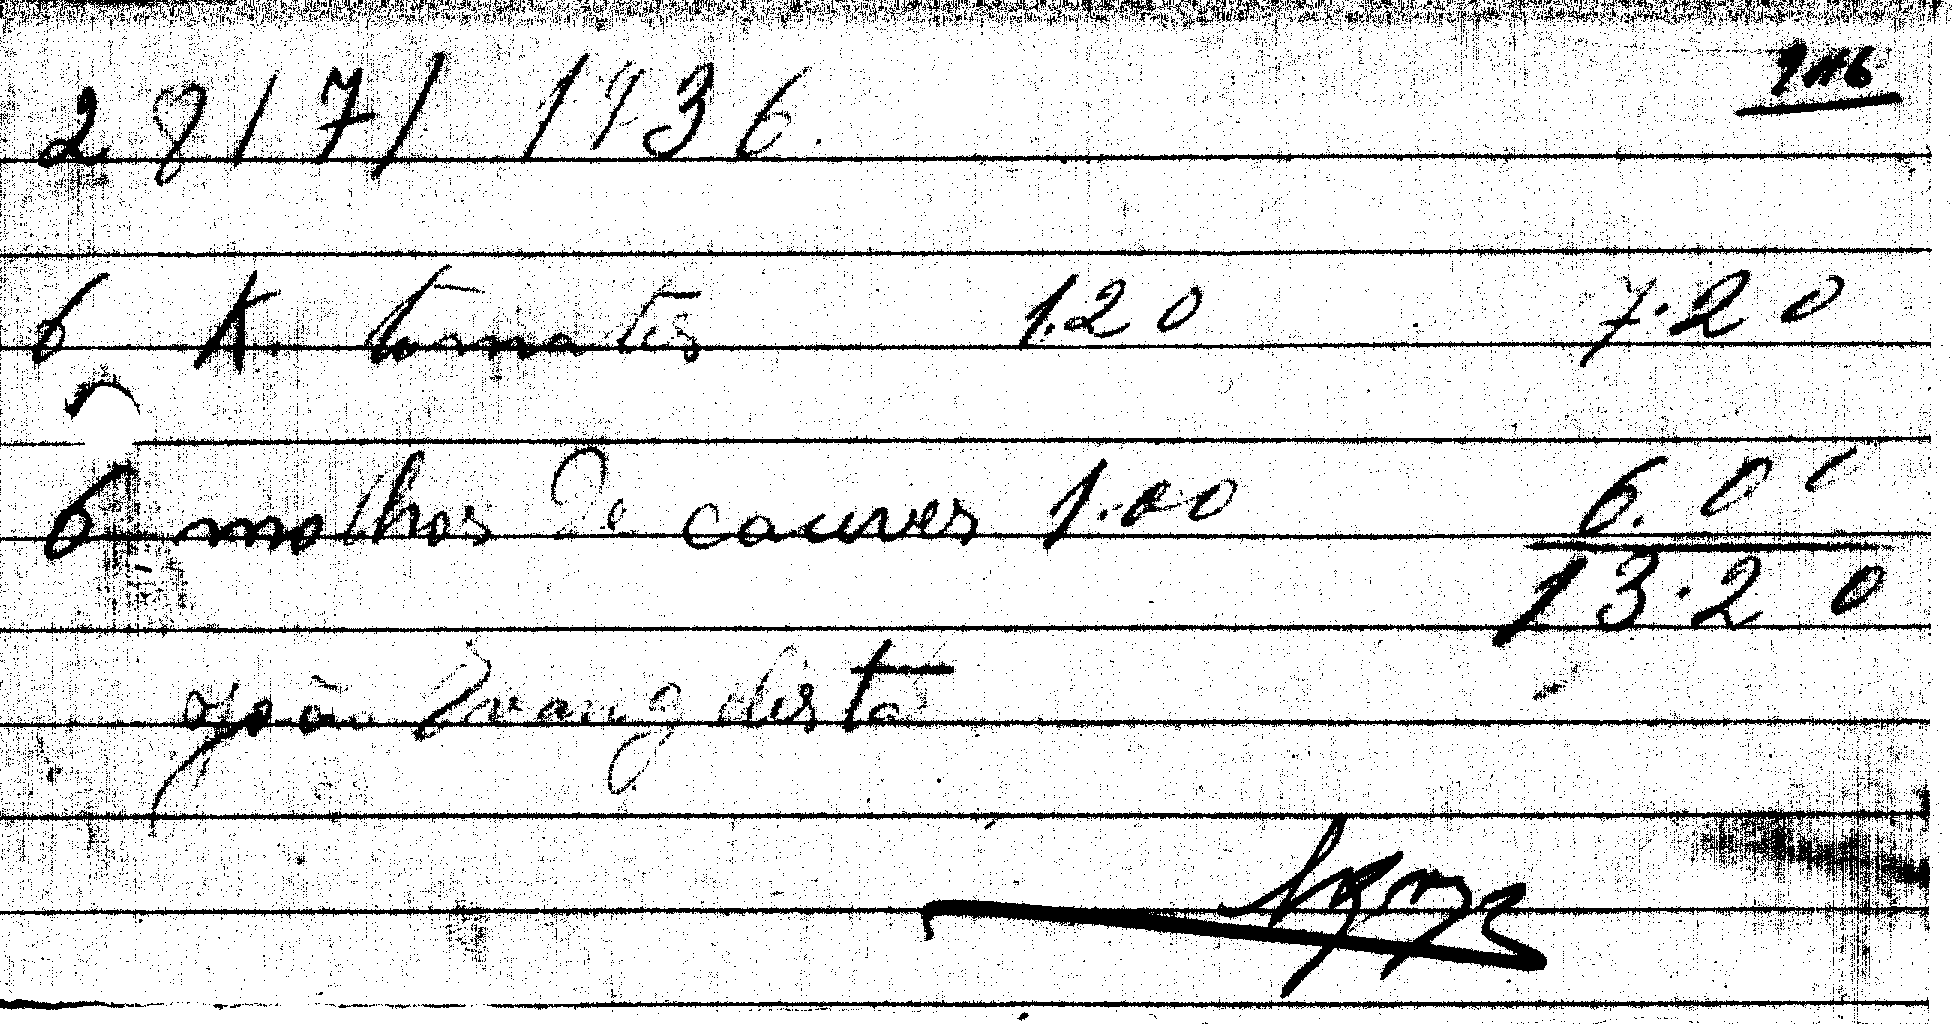 28/7/1936.
6 K. tomates 1.20 7.20
6 molhos de couves 1.00 6.00
13.20
João Evangelista